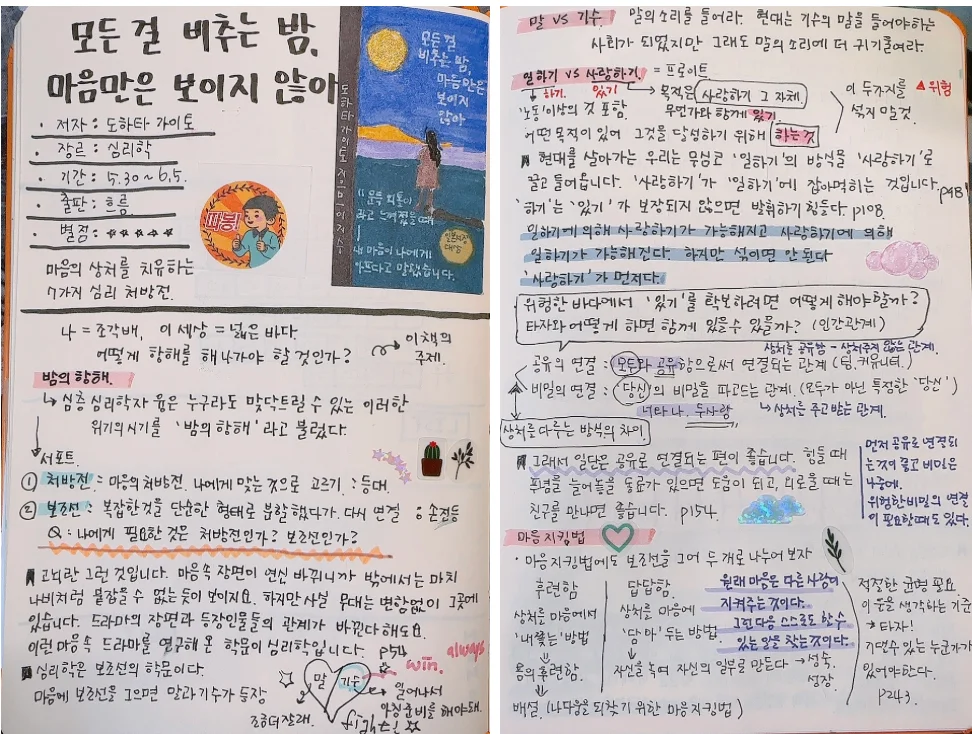 모든 걸 비추는 밤,
마음만은 보이지 않아
· 저자 : 도하타 가이토
· 장르 : 심리학
· 기간 : 5.30 ~ 6.5.
· 출판 : 흐름
· 별점 : ★★★★★
마음의 상처를 치유하는
7가지 심리 처방전.
따봉!
도하타 가이토 지음
모든 걸
비추는 밤,
마음만은
보이지
않아
새 마음이 나에게
아프다고 말했습니다.
나 = 조각배, 이 세상 = 넓은 바다.
어떻게 항해를 해 나가야 할 것인가?
이 책의
주제.
밤의 항해.
↳ 심층 심리학자 융은 누구라도 맞닥트릴 수 있는 이러한
위기의 시기를 '밤의 항해' 라고 불렀다.
서포트.
① 처방전 : 마음의 처방전. 나에게 맞는 것으로 고르기. : 등대.
② 보조선 : 복잡한것을 단순한 형태로 분할했다가 다시 연결 : 손전등
Q : 나에게 필요한 것은 처방전인가? 보조선인가?
고뇌란 그런 것입니다. 마음속 장면이 연신 바뀌니까 밖에서는 마치
나비처럼 붙잡을 수 없는 듯이 보이지요. 하지만 사실 무대는 변함없이 그곳에
있습니다. 드라마의 장면과 등장인물들의 관계가 바뀐다 해도요.
이런 마음속 드라마를 연구해 온 학문이 심리학입니다. p54
심리학은 보조선의 학문이다.
마음에 보조선을 그으면 말과 기수가 등장
말
기수
always
win.
일어나서
아침준비를 해야돼.
조금더 잘래.
fight!
말 vs 기수
말의 소리를 들어라. 현대는 기수의 말을 들어야하는
사회가 되었지만 그래도 말의 소리에 더 귀기울여라.
일하기 vs 사랑하기. = 프로이트
하기. 있기
→ 목적은 사랑하기 그 자체.
'노동' 이상의 것 포함. 무언가와 함께 있기
어떤 목적이 있어 그것을 달성하기 위해 하는 것
이 두가지를
섞지 말것
▲위험
현대를 살아가는 우리는 무심코 '일하기'의 방식을 '사랑하기'로
끌고 들어옵니다. '사랑하기'가 '일하기'에 잡아먹히는 것입니다. p98
'하기'는 '있기'가 보장되지 않으면 발휘하기 힘들다 p108.
일하기에 의해 사랑하기가 가능해지고 사랑하기에 의해
일하기가 가능해진다. 하지만 섞이면 안 된다
'사랑하기'가 먼저다.
위험한 바다에서 '있기'를 확보하려면 어떻게 해야 할까?
타자와 어떻게 하면 함께 있을수 있을까? (인간관계)
상처를 공유함 - 상처주지 않는 관계.
공유의 연결 : 모두와 공유함으로써 연결되는 관계 (팀, 커뮤니티.)
비밀의 연결 : 당신의 비밀을 파고드는 관계. (모두가 아닌 특정한 '당신')
너타 나. 두사람
↳ 상처를 주고 받는 관계.
상처를 다루는 방식의 차이.
그래서 일단은 공유로 연결되는 편이 좋습니다. 힘들 때
푸념을 늘어놓을 동료가 있으면 도움이 되고, 외로울 때는
친구를 만나면 좋습니다. p154.
먼저 공유로 연결되
는 것이 좋고 비밀은
나중에.
위험한 비밀의 연결
이 필요할때도 있다.
마음 지킴법
· 마음 지킴법에도 보조선을 그어 두 개로 나누어보자
후련함
상처를 마음에서
'내쫓는' 방법
몸의 후련함.
배설.
답답함.
상처를 마음에
'담아' 두는 방법
자신을 녹여 자신의 일부로 만든다 → 성숙,
성장.
(나다움을 되찾기 위한 마음지킴법)
원래 마음은 다른 사람이
지켜주는 것이다.
그런 다음 스스로도 할 수
있는 일을 찾는 것이다.
적절한 균형 필요.
이 둘을 생각하는 기준
→ 타자!
기댈수 있는 누군가가
있어야한다.
p243.